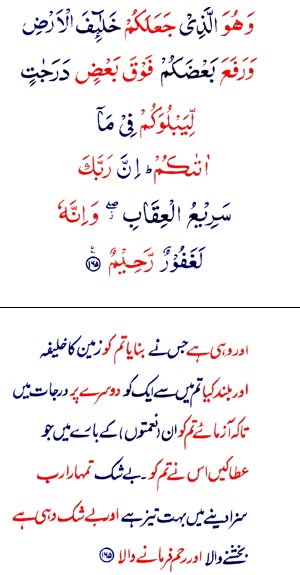 وَهُوَ الَّذِىْ جَعَلَكُمْ خَلٰٓئِفَ الْاَرْضِ
وَرَفَعَ بَعْضَكُمْ فَوْقَ بَعْضٍ دَرَجٰتٍ
لِّيَبْلُوَكُمْ فِىْ مَآ
اٰتٰٮكُمْ ؕ اِنَّ رَبَّكَ
سَرِيْعُ الْعِقَابِ ۖ ز وَاِنَّهٗ
لَغَفُوْرٌ رَّحِيْمٌ ۱۶۵
اور وہی ہے جس نے بنایا تم کو زمین کا خلیفہ
اور بلند کیا تم میں سے ایک کو دوسرے پر درجات میں
تاکہ آزمائے تم کو ان (نعمتوں) کے بارے میں جو
عطا کیں اس نے تم کو ۔ بے شک تمہارا رب
سزا دینے میں بہت تیز ہے اور بے شک وہی ہے
بخشنے والا اور رحم فرمانے والا ۱۶۵